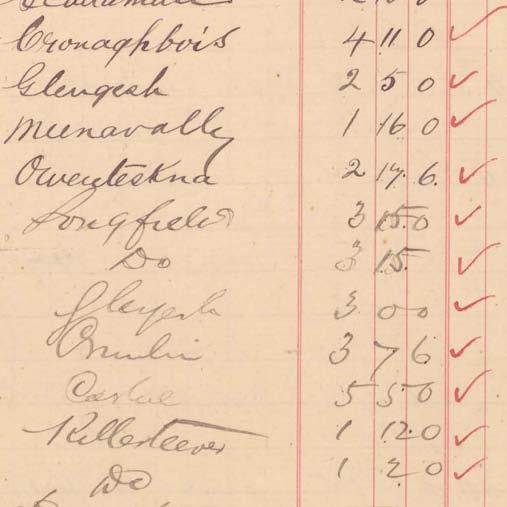 Cronaghbois 4 11 0
Glengesh 2 5 0
Meenavally 1 16 0
Owenteskna 2 17 6
Longfield 3 15 0
Do 3 15
Glengesh 3 0 0
3 7 6
5 5 0
Killasteever 1 12 0
Do 1 2 0